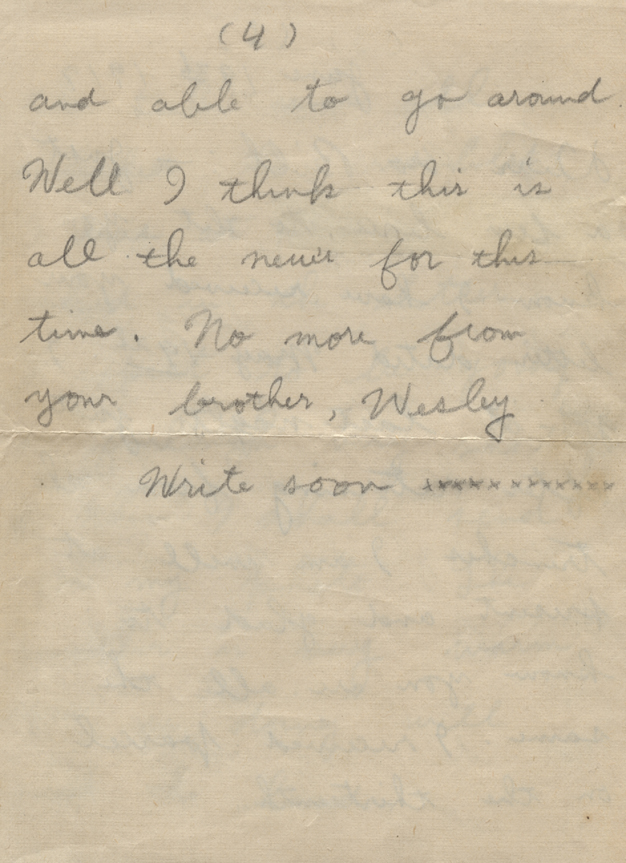 (4)
and able to go around
Well I think this is
all the news for this
time. No more from
your brother, Wesley
Write soon xxxxxxxxxxxxx